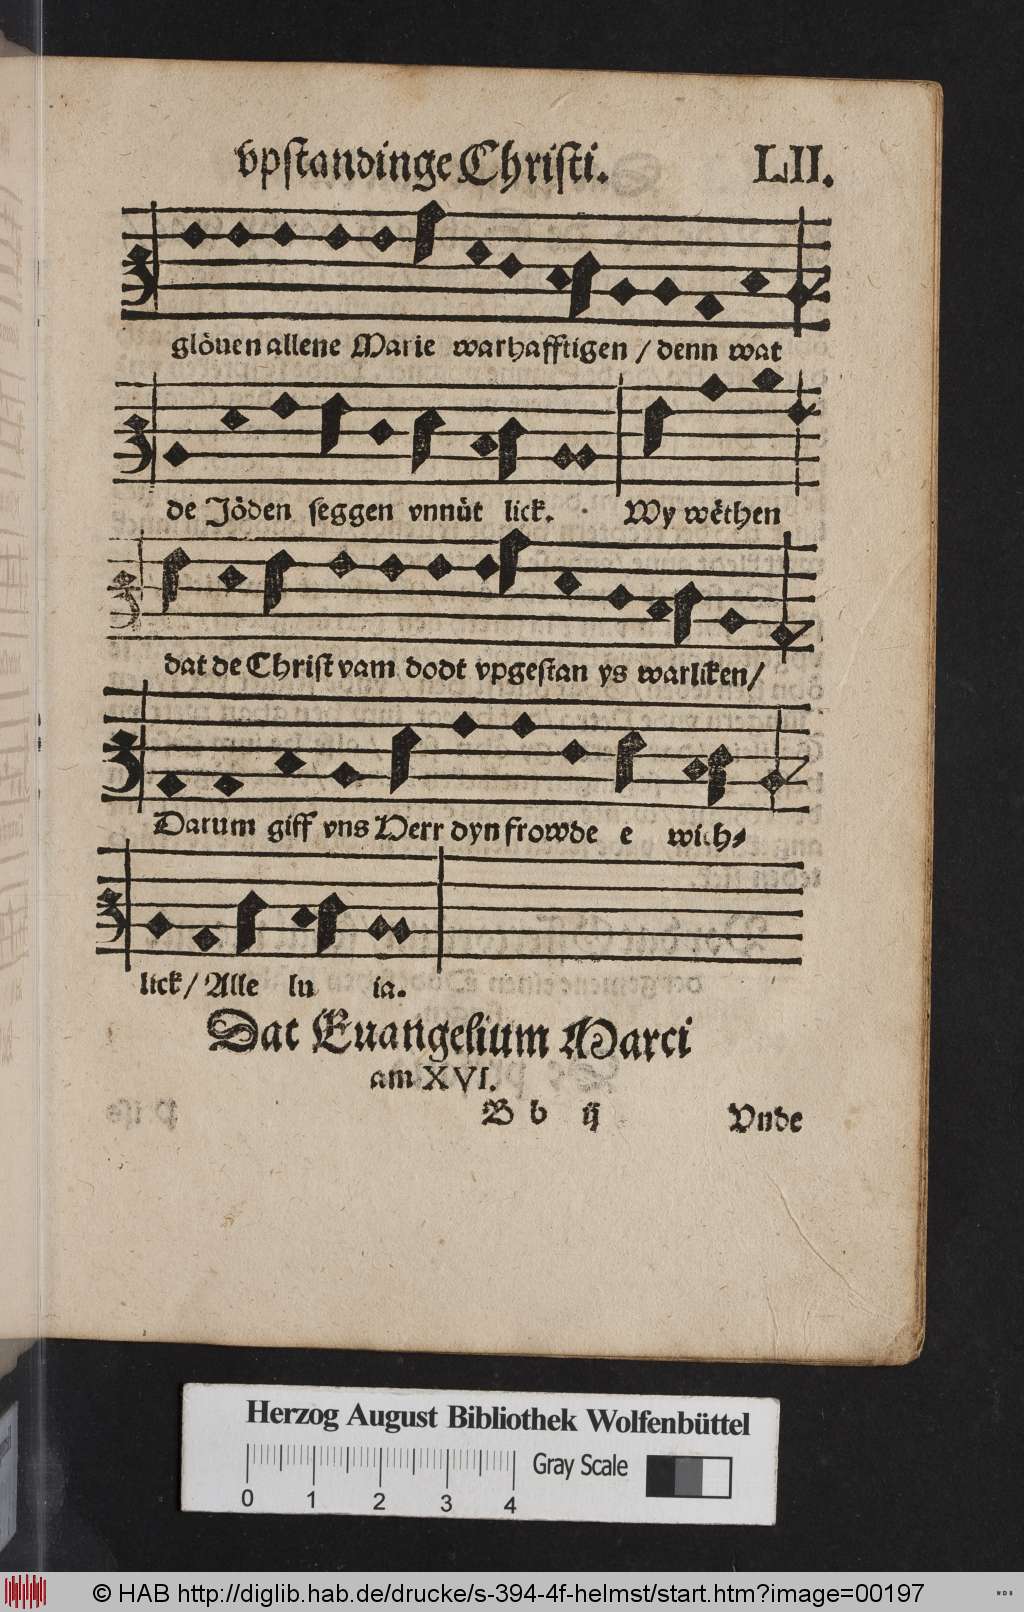 vpstandinge Christi. LII.
glöuen allene Marie warhafftigen / denn wat
de Jöden seggen vnnüt lick. Wy wëthen
dat de Christ vam dodt vpgestan ys warliken /
Darum giff vns Herr dyn frowde e wich⸗
lick / Alle lu ia.
Dat Euangelium Marci
am XVI.
B b ij Vnde
Herzog August Bibliothek Wolfenbüttel
Gray Scale
0 1 2 3 4
© HAB http://diglib.hab.de/drucke/s-394-4f-helmst/start.htm?image=00197